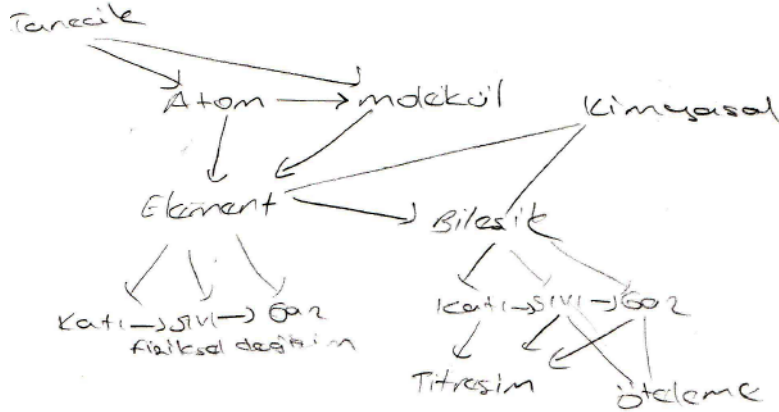 Tanecik
Atom → molekül
Kimyasal
Element
Bileşik
Katı → sıvı → Gaz
fiziksel değişim
Katı → sıvı → Gaz
Titreşim
Öteleme